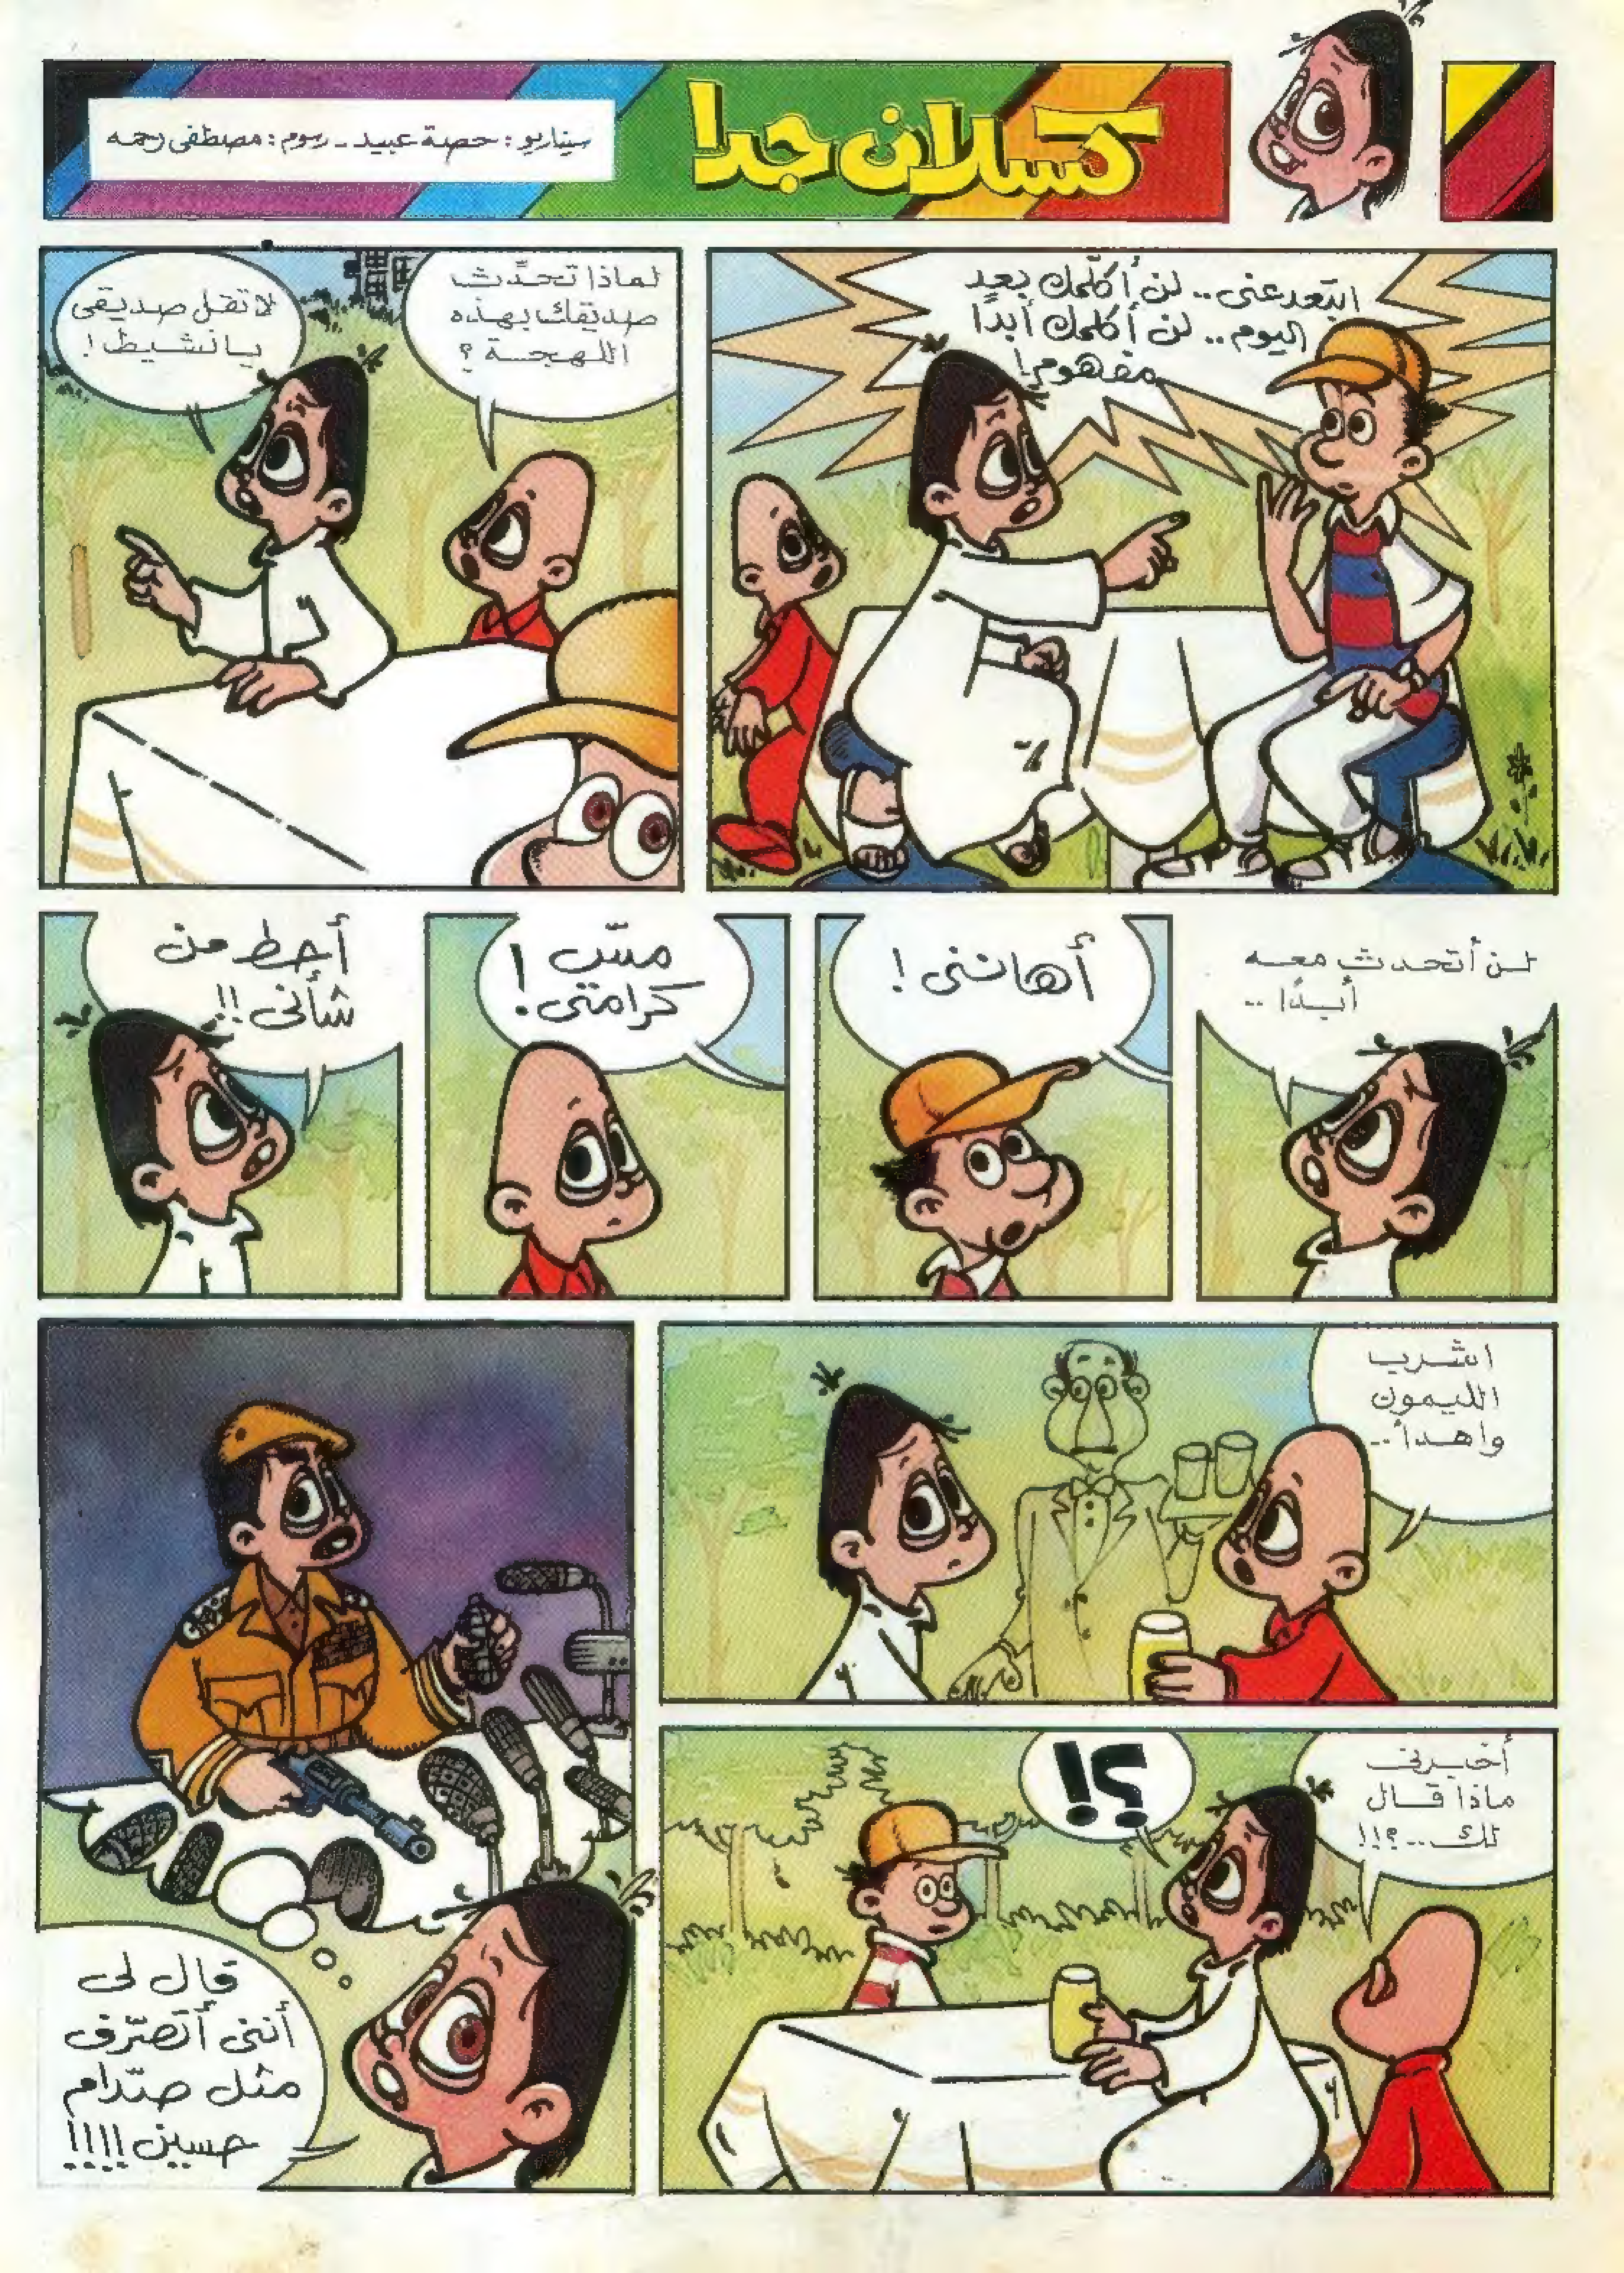 كسلان جدا
سيناريو: حصة عبيد - رسوم: مصطفى رحمه
ابتعد عني.. لن أكلمك بعد
اليوم.. لن أكلمك أبدًا
مفهوم!
لماذا تحدّث
صديقك بهذه
اللهجة؟
لا تقل صديقي
يا نشيط!
لن أتحدث معه
أبدًا..
أهانني!
مسّ
كرامتي!
أحط من
شأني!!
اشرب
الليمون
واهدأ..
أخبرني
ماذا قال
لك..؟!!
؟!
قال لي
أنني أتصرّف
مثل صدّام
حسين!!!!